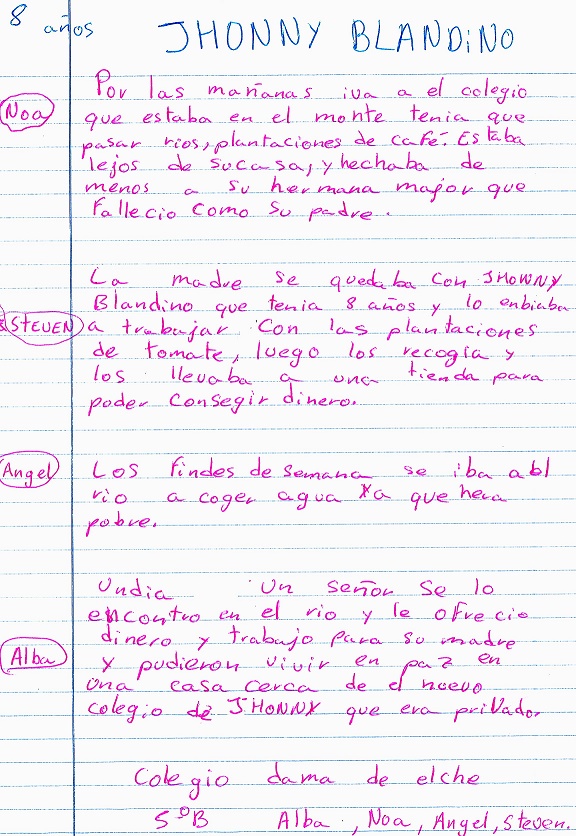 8 años JHONNY BLANDiNO
Por las mañanas iva a el colegio
Noa que estaba en el monte tenia que
pasar rios, plantaciones de café. Estaba
lejos de sucasa, y hechaba de
menos a su hermana major que
fallecio como su padre.
La madre se quedaba con JHONNY
Blandino que tenia 8 años y lo enbiaba
STEVEN a trabajar con las plantaciones
de tomate, luego los recogia y
los llevaba a una tienda para
poder consegir dinero.
Angel Los findes de semana se iba abl
rio a coger agua ya que hera
pobre.
Undia un señor se lo
encontro en el rio y le ofrecio
dinero y trabajo para su madre
Alba y pudieron vivir en paz en
una casa cerca de el nuevo
colegio de JHONNY que era privado.
Colegio dama de elche
5ºB Alba, Noa, Angel, Steven.